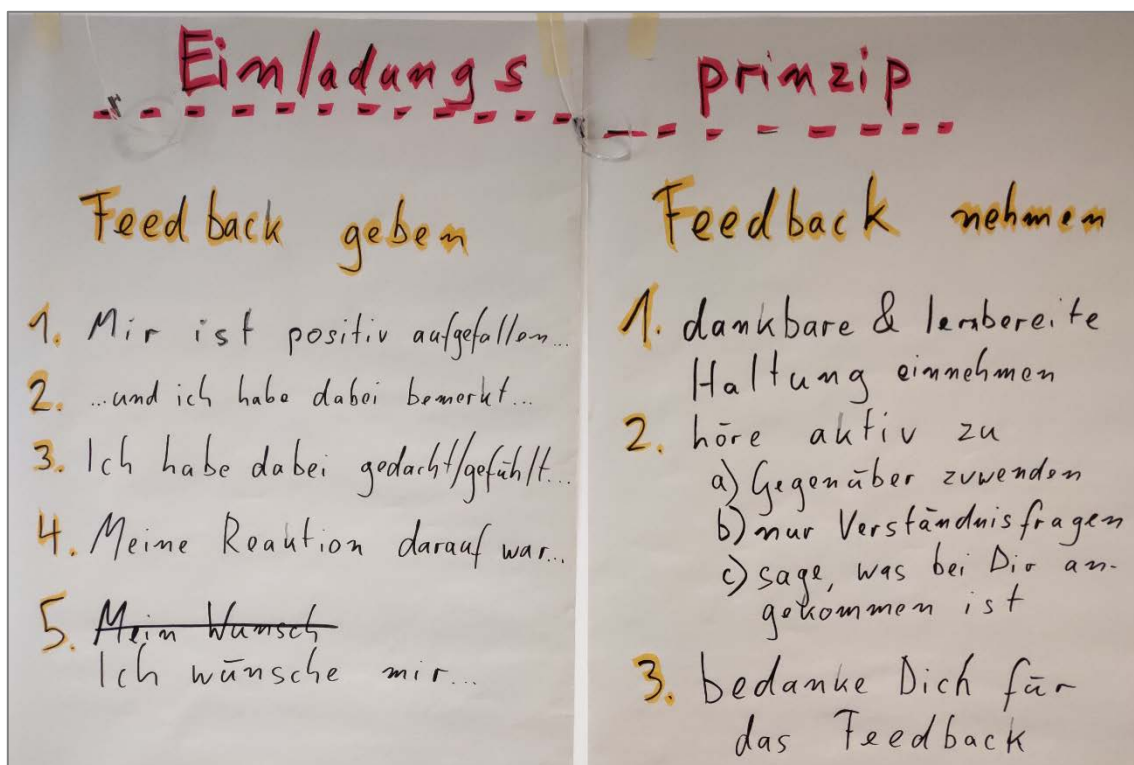 Einladungs prinzip
Feedback geben
1. Mir ist positiv aufgefallen...
2. ...und ich habe dabei bemerkt...
3. Ich habe dabei gedacht/gefühlt...
4. Meine Reaktion darauf war...
5. Mein Wunsch
Ich wünsche mir...
Feedback nehmen
1. dankbare & lernbereite
Haltung einnehmen
2. höre aktiv zu
a) Gegenüber zuwenden
b) nur Verständnisfragen
c) sage, was bei Dir an-
gekommen ist
3. bedanke Dich für
das Feedback